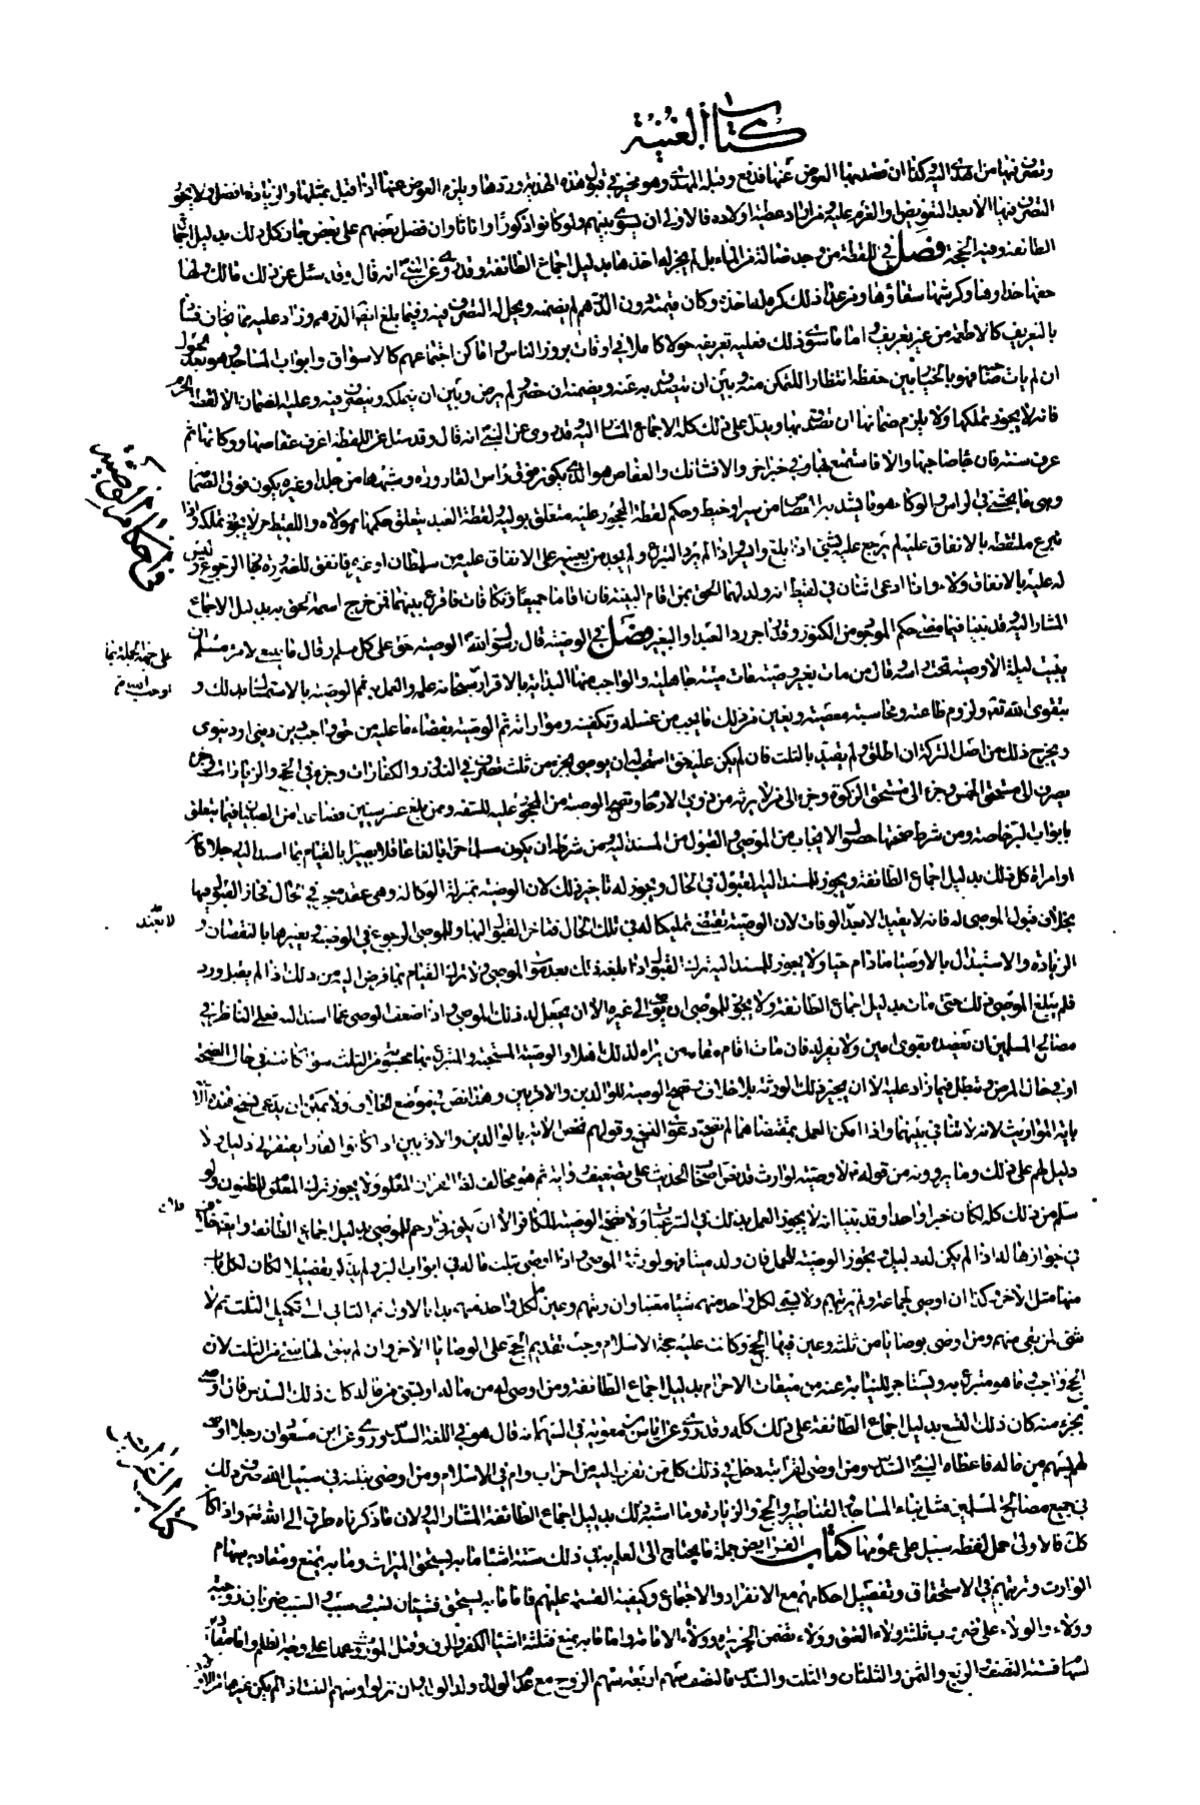 كتاب الغنية
وتصرف فيها من اهدى اليه وكذا ان قصد بها العوض عنها فدفع وقبله المهدي وهو مخير في قبول هذه الهدية وردها ويلزم العوض عنها اذا قبل بمثلها والزيادة افضل ولا يجوز
التصرف فيها الا بعد التعويض او العزم عليه ومن اراد عطية اولاده فالاولى ان يسوي بينهم ولو كانوا ذكورا واناثا وان فضل بعضهم على بعض جاز كل ذلك بدليل اجماع
الطائفة وفيه الحجة فصل في اللقطة من وجد ضالة من الماء بل لم يجز له اخذها بدليل اجماع الطائفة وقد روى عن النبي انه قال وقد سئل عن ذلك مالك ولها
معها حذاؤها وكرشها سقاؤها ومن عدا ذلك كره له اخذه وكان قيمته دون الدرهم لم يضمنه ويحل له التصرف فيه وفيما بلغ ايضا الدرهم وزاد عليه مما يخاف فساده
بالتعريف كالاطعمة من غير تعريف واما ما سوى ذلك فعليه تعريفه حولا كاملا في اوقات بروز الناس واماكن اجتماعهم كالاسواق وابواب المساجد وهو بعد الحول
ان لم يات صاحبها فهو بالخيار بين حفظه انتظارا للتمكن منه وبين ان يتصدق به عنه ويضمنه ان حضر ولم يرض وبين ان يتملكه ويتصرف فيه وعليه الضمان الا لقطة الحرم
فانه لا يجوز تملكها ولا يلزم ضمانها ان تصدق بها ويدل على ذلك كله الاجماع المشار اليه وقد روى عن النبي انه قال وقد سئل عن اللقطة اعرف عفاصها ووكائها ثم
عرف سنة فان جاء صاحبها والا فاستمتع بها وفي خبر اخر والا فشانك والعفاص هو الذي يكون فوق راس القارورة وشبهها من جلد او غيره يكون فوق الصمام
وهي ما يحشى في الراس والوكاء هو ما يشد به العفاص من سير او خيط وحكم لقطة المحجور عليه متعلق بوليه ولقطة العبد يتعلق حكمها بمولاه واللقيط حر لا يجوز تملكه واذا
تبرع ملتقطه بالانفاق عليه لم يرجع عليه بشيء اذا بلغ وايسر واذا لم يرد التبرع ولم يجد من يعينه على الانفاق عليه من سلطان او غيره فانفق للضرورة فله الرجوع وليس
له عليه بالانفاق ولاء واذا ادعى اثنان في لقيط انه ولد لهما الحق بمن اقام البينة فان اقاما جميعا وتكافات فاقرع بينهما فمن خرج اسمه الحق به بدليل الاجماع
المشار اليه وقد بينا فيما مضى حكم الموجود من الكنوز وقدر اجر رد العبد او البعير فصل في الوصية قال رسول الله الوصية حق على كل مسلم وقال ما ينبغي لامرء مسلم ان
يبيت ليلة الا ووصيته تحت راسه وقال من مات بغير وصية مات ميتة جاهلية والواجب منها البداية بالاقرار بما علمه والعمل به ثم الوصية بالاستمساك بذلك و
بتقوى الله تعالى ولزوم طاعته ومجانبة معصيته ويعين من ذلك ما يجب من غسله وتكفينه ومواراته ثم الوصية بقضاء ما عليه من حق واجب ديني او دنيوي
ويخرج ذلك من اصل التركة ان اطلق ولم يقيد بالثلث فان لم يكن عليه حق استحب له ان يوصي بجزء من ثلثه تصرف في النذور والكفارات وجزء في الحج والزيارات وجزء
يصرف الى مستحق الخمس وجزء الى مستحق الزكوة وجزء الى من لا يرثه من ذوي الارحام وتصح الوصية من المحجور عليه للسفه وممن بلغ عشر سنين فصاعدا من الصبيان فيما يتعلق
بابواب البر خاصة ومن شرط صحتها حصول الايجاب من الموصي والقبول من المسند اليه ومن شرطه ان يكون مسلما حرا بالغا عاقلا بصيرا بالقيام بما اسند اليه رجلا كان
او امراة كل ذلك بدليل اجماع الطائفة ويجوز للمسند اليه القبول في الحال ويجوز له تاخير ذلك لان الوصية بمنزلة الوكالة وهي عقد منجز في الحال فجاز القبول فيها
بخلاف قبول الموصى له فانه لا يعتد به الا بعد الوفات لان الوصية تقتضي تمليكا له في تلك الحال فتاخر القبول اليها وللموصي الرجوع في الوصية وتغييرها بالنقصان و
الزيادة والاستبدال بالاوصياء ما دام حيا ولا يجوز للمسند اليه ترك القبول اذا بلغه ذلك بعد موت الموصي ولا ترك القيام بما فرض اليه من ذلك اذا لم يقبل ورد
فلم يبلغ الموصي ذلك حتى مات بدليل اجماع الطائفة ولا يجوز للموصى ان يوصي الى غيره الا ان يجعل له ذلك الموصي واذا ضعف الوصي عما اسند اليه فعلى الناظر في
مصالح المسلمين ان يعضده بقوي امين ولا يعزله فان مات اقام مقامه من يراه لذلك اهلا والوصية المستحبة والمتبرع بها محسوبة من الثلث سواء كانت في حال الصحة
او في حال المرض وتبطل فيما زاد عليه الا ان يجيز ذلك الورثة بلا خلاف وتصح الوصية للوالدين والاقربين وهذا نص في موضع الخلاف ولا يمكن ان يدعى نسخ هذه الاية
باية المواريث لانه لا تنافي بينهما واذا امكن العمل بمقتضاهما لم تصح دعوى النسخ وقولهم تخصص الاية بالوالدين والاقربين اذا كانوا كفارا يفتقر الى دليل ولا
دليل لهم على ذلك وما يروونه من قوله لا وصية لوارث قد نص اصحاب الحديث على تضعيف رواته ثم هو مخالف لظاهر القران المعلوم ولا يجوز ترك المعلوم للمظنون ولو
سلم من ذلك كله لكان خبرا واحدا وقد بينا انه لا يجوز العمل بذلك في الشرعيات ولا تصح الوصية للكافر الا ان يكون ذا رحم للموصي بدليل اجماع الطائفة
في جوازها له اذا لم يكن له دليل وتجوز الوصية للحمل فان ولد ميتا فهو لورثة الموصي واذا اوصى بثلث ماله في ابواب البر ولم يذكر تفصيلا كان لكل باب
منها مثل الاخر وكذا ان اوصى لجماعة ولم يرتبهم ولا سمى لكل واحد منهم شيئا معينا وان رتبهم وعين ما لكل واحد منهم بدا بالاول ثم الثاني الى تكميل الثلث ثم لا
شيء لمن بقي منهم ومن اوصى بوصايا من ثلثه وعين فيها الحج وكانت عليه حجة الاسلام وجب تقديم الحج على الوصايا الاخر وان لم يبق لها شيء من الثلث لان
الحج واجب وما هو متبرع به ويستاجر للنيابة عنه من ميقات الاحرام بدليل اجماع الطائفة ومن اوصى بسهم من ماله او بشيء من ماله كان ذلك السدس فان اوصى
بجزء منه كان ذلك السبع بدليل اجماع الطائفة على ذلك كله وقد روى عن اياس بن معوية في السهم انه قال هو في اللغة السدس وروى عن ابن مسعود ان رجلا اوصى
له بسهم من ماله فاعطاه النبي السدس ومن اوصى لقرابته دخل في ذلك كل من تقرب اليه الى اخر اب وام في الاسلام ومن اوصى بثلثه في سبيل الله صرف ذلك
في جميع مصالح المسلمين مثل بناء المساجد والقناطير والحج والزيارة وما اشبه ذلك بدليل اجماع الطائفة المشار اليه ولان ما ذكرناه طرق الى الله تعالى واذا كان
كذلك فالاولى حمل لفظة سبيل على عمومها كتاب الفرايض جملة ما يحتاج الى العلم به في ذلك ستة اشياء ما به يستحق الميراث وما به يمنع ومقادير سهام
الوارث وترتيبهم في الاستحقاق وتفصيل احكامهم مع الانفراد والاجتماع وكيفية القسمة عليهم فاما ما به يستحق فشيئان نسب وسبب والسبب ضربان زوجية
وولاء والولاء على ضروب ثلثة ولاء العتق وولاء تضمن الجريرة وولاء الامامة واما ما به يمنع فثلثة اشياء الكفر والرق وقتل الموروث عمدا على وجه الظلم واما مقادير
السهام فستة النصف والربع والثمن والثلثان والثلث والسدس فالنصف سهم اربعة سهم الزوج مع عدم الولد وولد الولد وان نزلوا وسهم البنت اذا لم يكن غيرها من الاولاد
في احكام الوصية
لا يعتد
كتاب الميراث